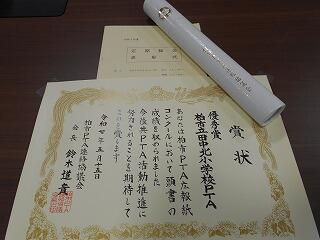 定期総会
表彰式
賞状
優秀賞
柏市立田中北小学校PTA
あなたは柏市PTA広報紙
コンクールにおいて頭書の
成績を収められました
今後共PTA活動推進に
努力されることを期待して
これを賞します
令和七年五月十五日
柏市PTA連絡協議会
会長 鈴木道貴